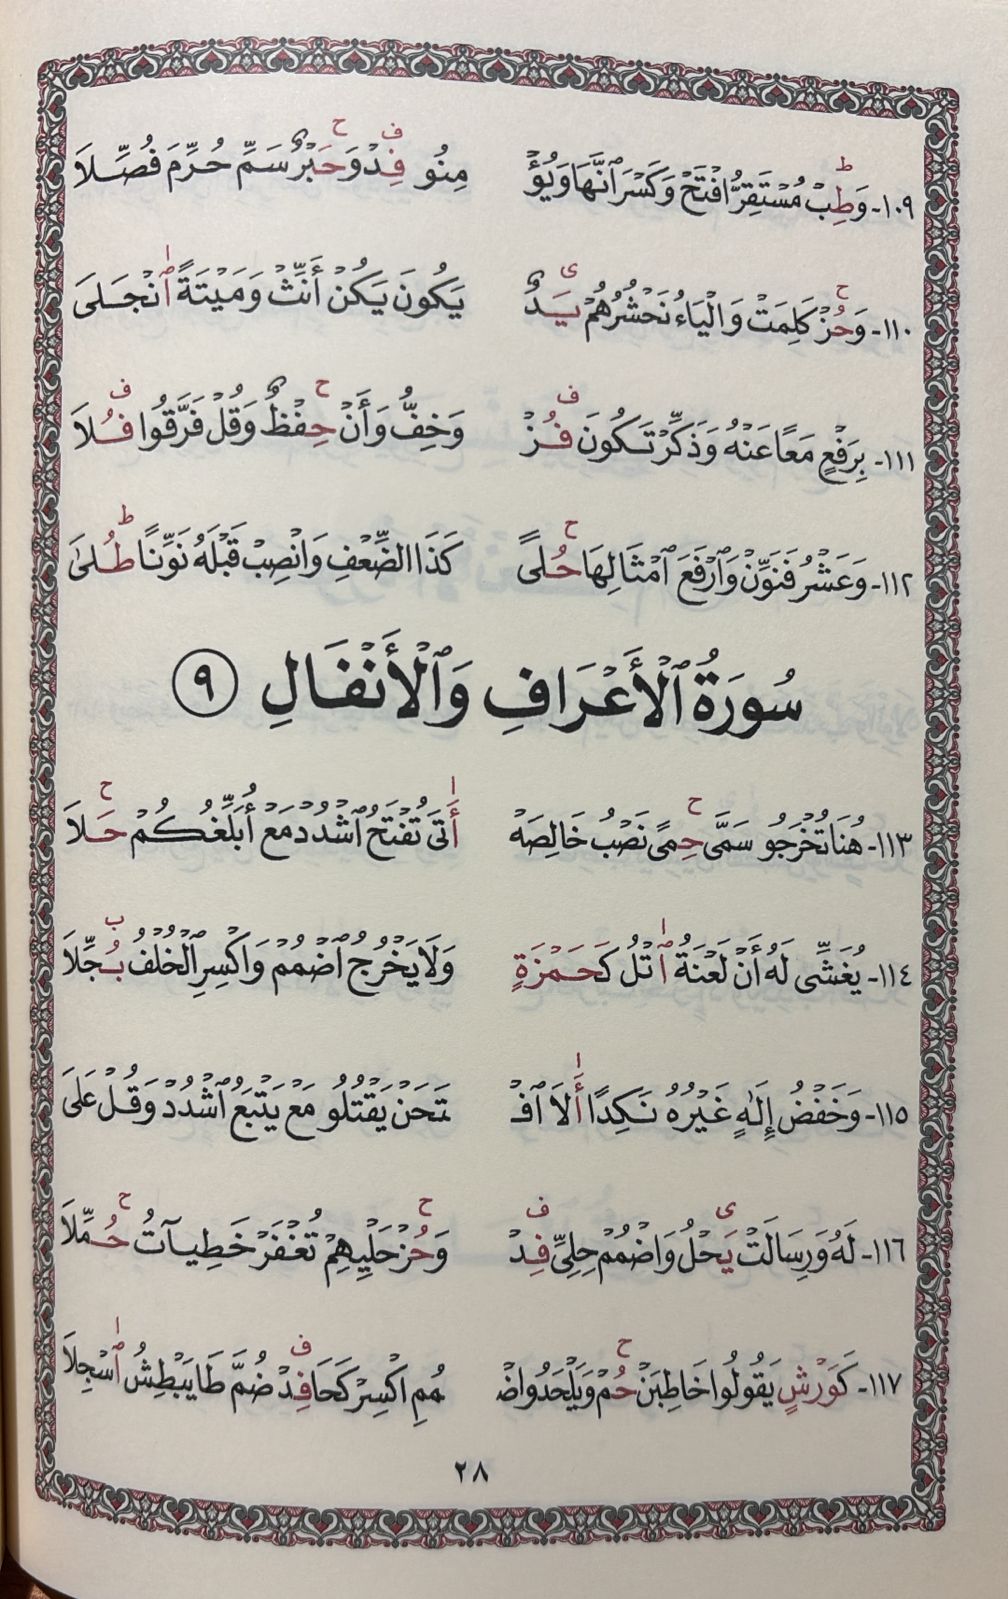 ١٠٩- وَطِبْ مُسْتَقِرُّ افْتَحْ وَكَسْرَ ٱنَّهَا وَيُؤْ مِنُو فِدْ وَحَبْرٌ سَمِّ حُرِّمَ فُصِّلَا
١١٠- وَحُزْ كَلِمَتْ وَالْيَاءُ نَحْشُرُهُمْ يَدٌ يَكُونَ يَكُنْ أَنِّثْ وَمَيْتَةً ٱنْجَلَى
١١١- بِرَفْعٍ مَعًا عَنْهُ وَذَكِّرْ تَكُونَ فُزْ وَخِفُّ وَأَنْ حِفْظٌ وَقُلْ فَرَّقُوا فُلَا
١١٢- وَعَشْرُ فَنَوِّنْ وَٱرْفَعَ ٱمْثَالِهَا حُلًى كَذَا الضِّعْفِ وَانْصِبْ قَبْلَهُ نَوِّنًا طُلَى
سُورَةُ ٱلْأَعْرَافِ وَٱلْأَنْفَالِ ٩
١١٣- هُنَا تُخْرَجُو سَمَّى حِمًى نَصْبُ خَالِصَهْ أَتَى تُفْتَحُ ٱشْدُدْ مَعْ أُبَلِّغُكُمْ حَلَا
١١٤- يُغَشِّي لَهُ أَنْ لَعْنَةُ ٱتْلُ كَحَمْزَةٍ وَلَا يَخْرُجُ ٱضْمُمْ وَاكْسِرِ ٱلْخُلْفُ بُجِّلَا
١١٥- وَخَفْضُ إِلَٰهٍ غَيْرُهُ نَكِدًا أَلَا ٱفْـ ـتَحَنْ يَقْتُلُو مَعْ يَتْبَعُ ٱشْدُدْ وَقُلْ عَلَى
١١٦- لَهُ وَرِسَالَتْ يَحْلُ وَاضْمُمْ حِلِيِّ فِدْ وَحُزْ حَلْيِهِمْ تُغْفَرْ خَطِيآتُ حُمِّلَا
١١٧- كَوَرْشٍ يَقُولُوا خَاطِبَنْ حُمْ وَيَلْحَدُوا ضْـ ـمُمِ اكْسِرْ كَحَا فِدْ ضُمَّ طَا يَبْطِشُ ٱسْجِلَا
٢٨